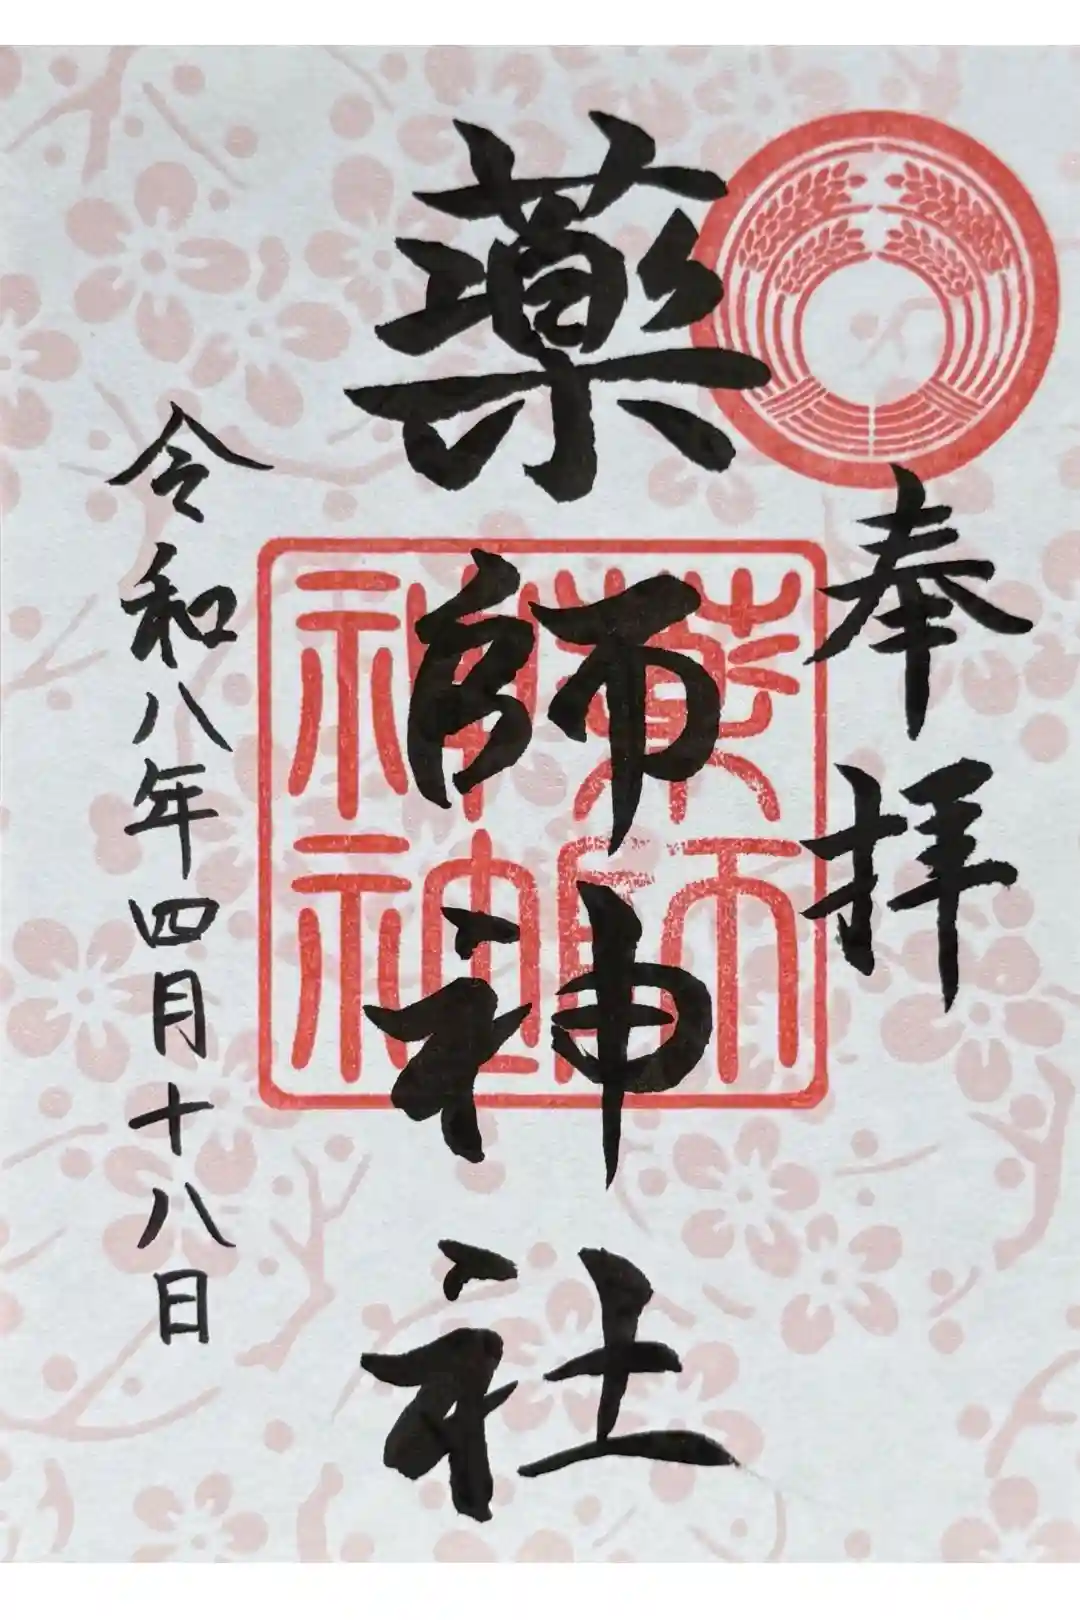 奉拝
薬師神社
薬師神社
令和八年四月十八日